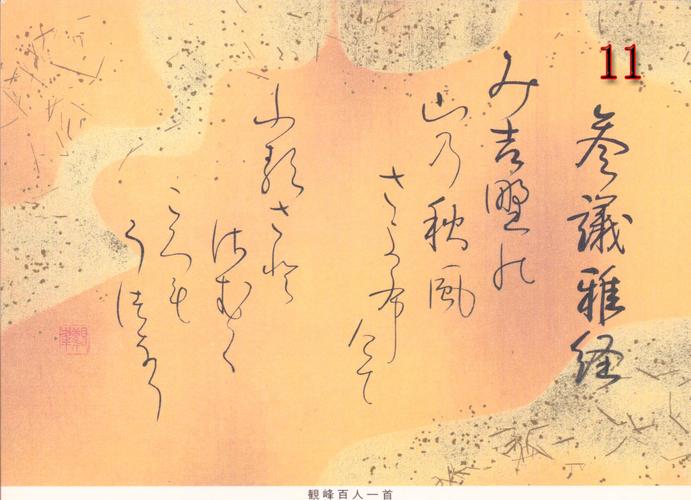 11
参議雅経
み吉野の
山乃秋風
さよ布けて
ふるさと
さむく
ころも
うつなり
観峰百人一首